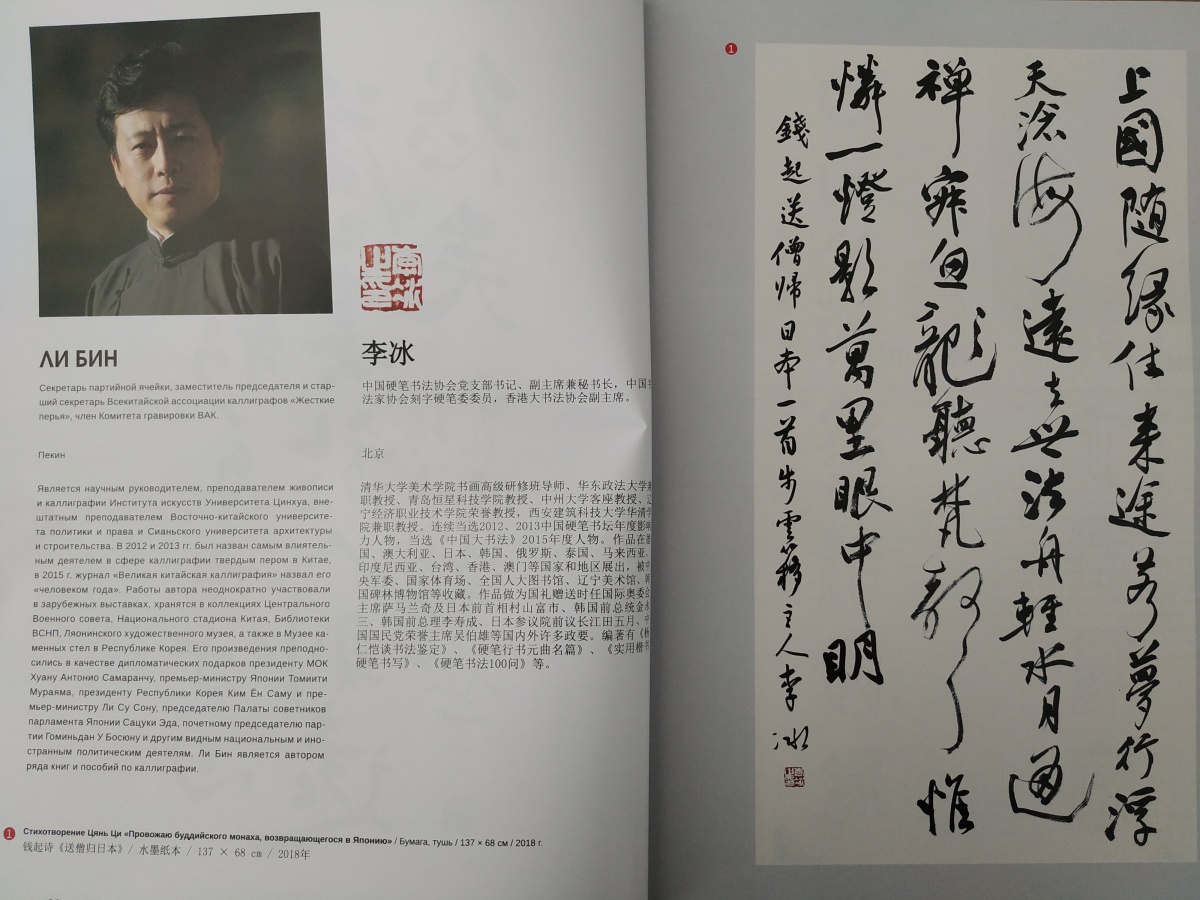 ЛИ БИН
Секретарь партийной ячейки, заместитель председателя и стар-
ший секретарь Всекитайской ассоциации каллиграфов «Жесткие
перья», член Комитета гравировки ВАК.
Пекин
Является научным руководителем, преподавателем живописи
и каллиграфии Института искусств Университета Цинхуа, вне-
штатным преподавателем Восточно-китайского университе-
та политики и права и Сианьского университета архитектуры
и строительства. В 2012 и 2013 гг. был назван самым влиятель-
ным деятелем в сфере каллиграфии твердым пером в Китае,
в 2015 г. журнал «Великая китайская каллиграфия» назвал его
«человеком года». Работы автора неоднократно участвовали
в зарубежных выставках, хранятся в коллекциях Центрального
Военного совета, Национального стадиона Китая, Библиотеки
ВСНП, Ляонинского художественного музея, а также в Музее ка-
менных стел в Республике Корея. Его произведения преподно-
сились в качестве дипломатических подарков президенту МОК
Хуану Антонио Самаранчу, премьер-министру Японии Томиити
Мураяма, президенту Республики Корея Ким Ён Саму и пре-
мьер-министру Ли Су Сону, председателю Палаты советников
парламента Японии Сацуки Эда, почетному председателю пар-
тии Гоминьдан У Босюну и другим видным национальным и ино-
странным политическим деятелям. Ли Бин является автором
ряда книг и пособий по каллиграфии.
李冰
中国硬笔书法协会党支部书记、副主席兼秘书长，中国
法家协会刻字硬笔委委员，香港大书法协会副主席。
北京
清华大学美术学院书画高级研修班导师、华东政法大学
职教授、青岛恒星科技学院教授、中州大学客座教授、
宁经济职业技术学院荣誉教授，西安建筑科技大学华清
院兼职教授。连续当选2012、2013中国硬笔书坛年度影
力人物，当选《中国大书法》2015年度人物。作品在
国、澳大利亚、日本、韩国、俄罗斯、泰国、马来西亚、
印度尼西亚、台湾、香港、澳门等国家和地区展出，被
央军委、国家体育场、全国人大图书馆、辽宁美术馆、
国碑林博物馆等收藏。作品做为国礼赠送时任国际奥委会
主席萨马兰奇及日本前首相村山富市、韩国前总统金
三、韩国前总理李寿成、日本参议院前议长江田五月、中
国国民党荣誉主席吴伯雄等国内外许多政要。编著有《
仁恺谈书法鉴定》、《硬笔行书元曲名篇》、《实用楷书
硬笔书写》、《硬笔书法100问》等。
1 Стихотворение Цянь Ци «Провожаю буддийского монаха, возвращающегося в Японию» / Бумага, тушь / 137 × 68 см / 2018 г.
钱起诗《送僧归日本》/ 水墨纸本 / 137 × 68 cm / 2018年
1
上國随缘住来途若夢行浮
天滄海遠去世法舟輕水月通
禅寂魚龍聽梵聲惟
憐一燈影萬里眼中明
錢起送僧歸日本一首步雲移主人李冰